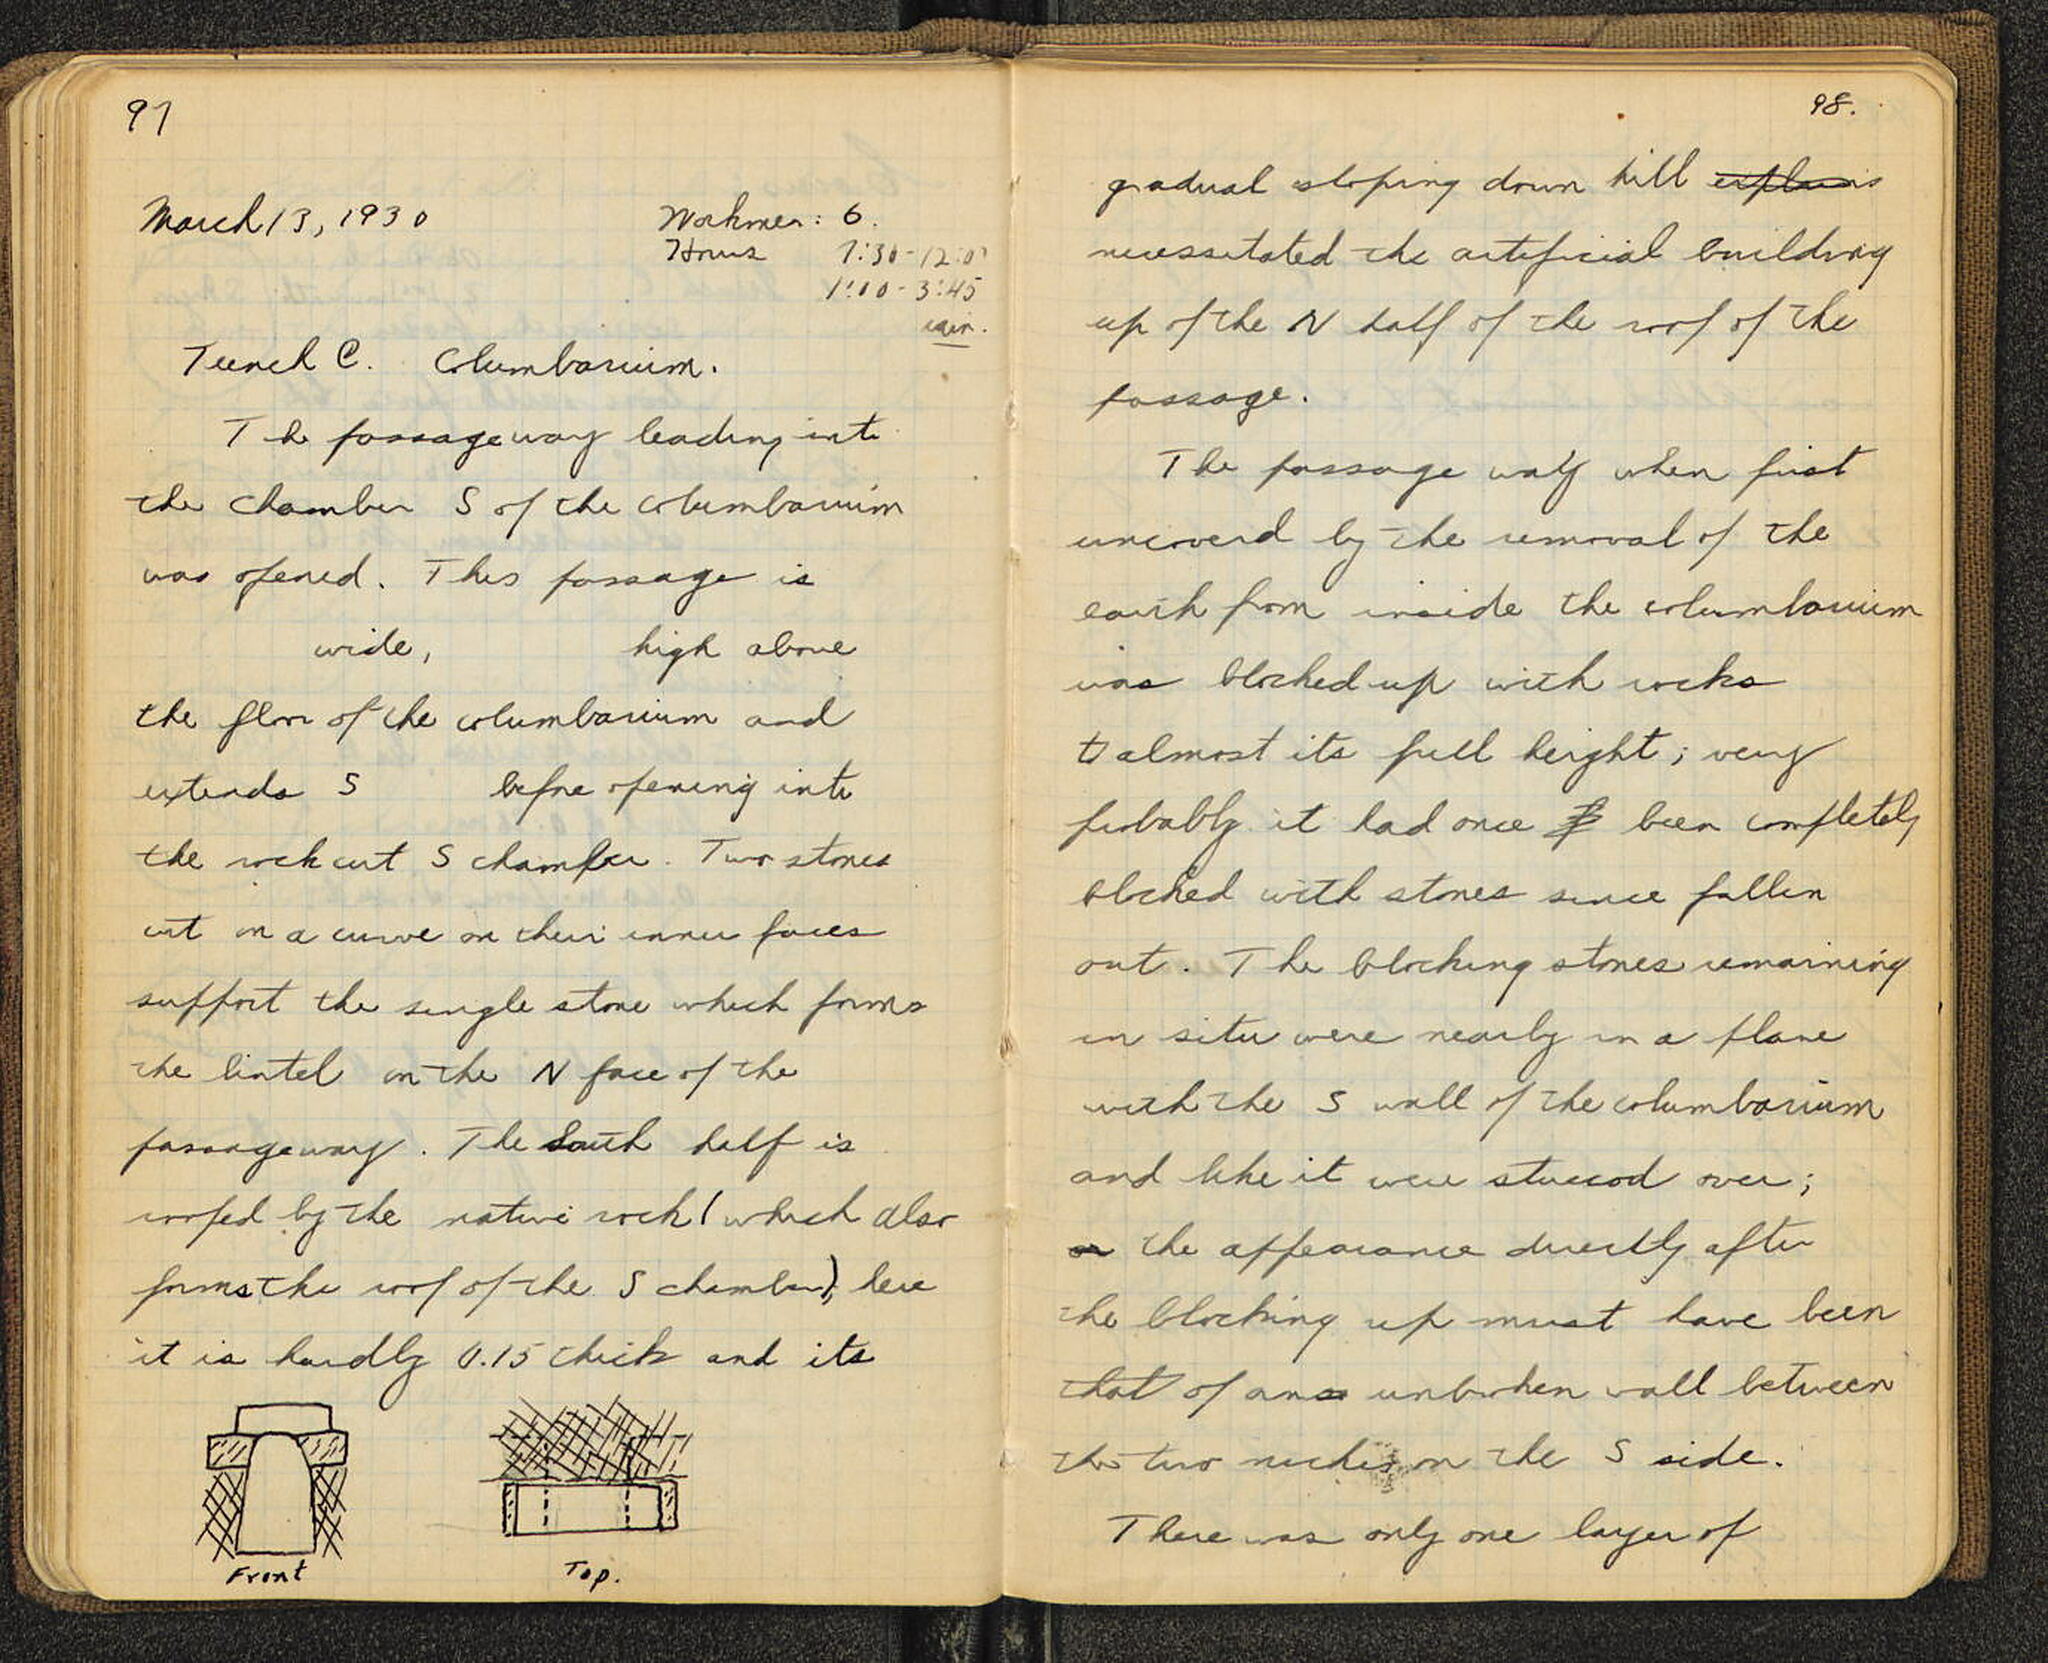 97
March 13, 1930
Workmen: 6.
Hours 7:30-12:00
1:00-3:45
rain.
Trench C. Columbarium.
The passageway leading into
the chamber S of the columbarium
was opened. This passage is
wide, high above
the floor of the columbarium and
extends S before opening into
the rock cut S chamber. Two stones
cut on a curve on their inner faces
support the single stone which forms
the lintel on the N face of the
passageway. The South half is
roofed by the native rock (which also
forms the roof of the S chamber), here
it is hardly 0.15 thick and its
Front
Top.
98.
gradual sloping down hill explains
necessitated the artificial building
up of the N half of the roof of the
passage.
The passage way when first
uncovered by the removal of the
earth from inside the columbarium
was blocked up with rocks
to almost its full height; very
probably it had once been completely
blocked with stones since fallen
out. The blocking stones remaining
in situ were nearly in a plane
with the S wall of the columbarium
and like it were stuccod over;
or the appearance directly after
the blocking up must have been
that of an unbroken wall between
the two niches on the S side.
There was only one layer of